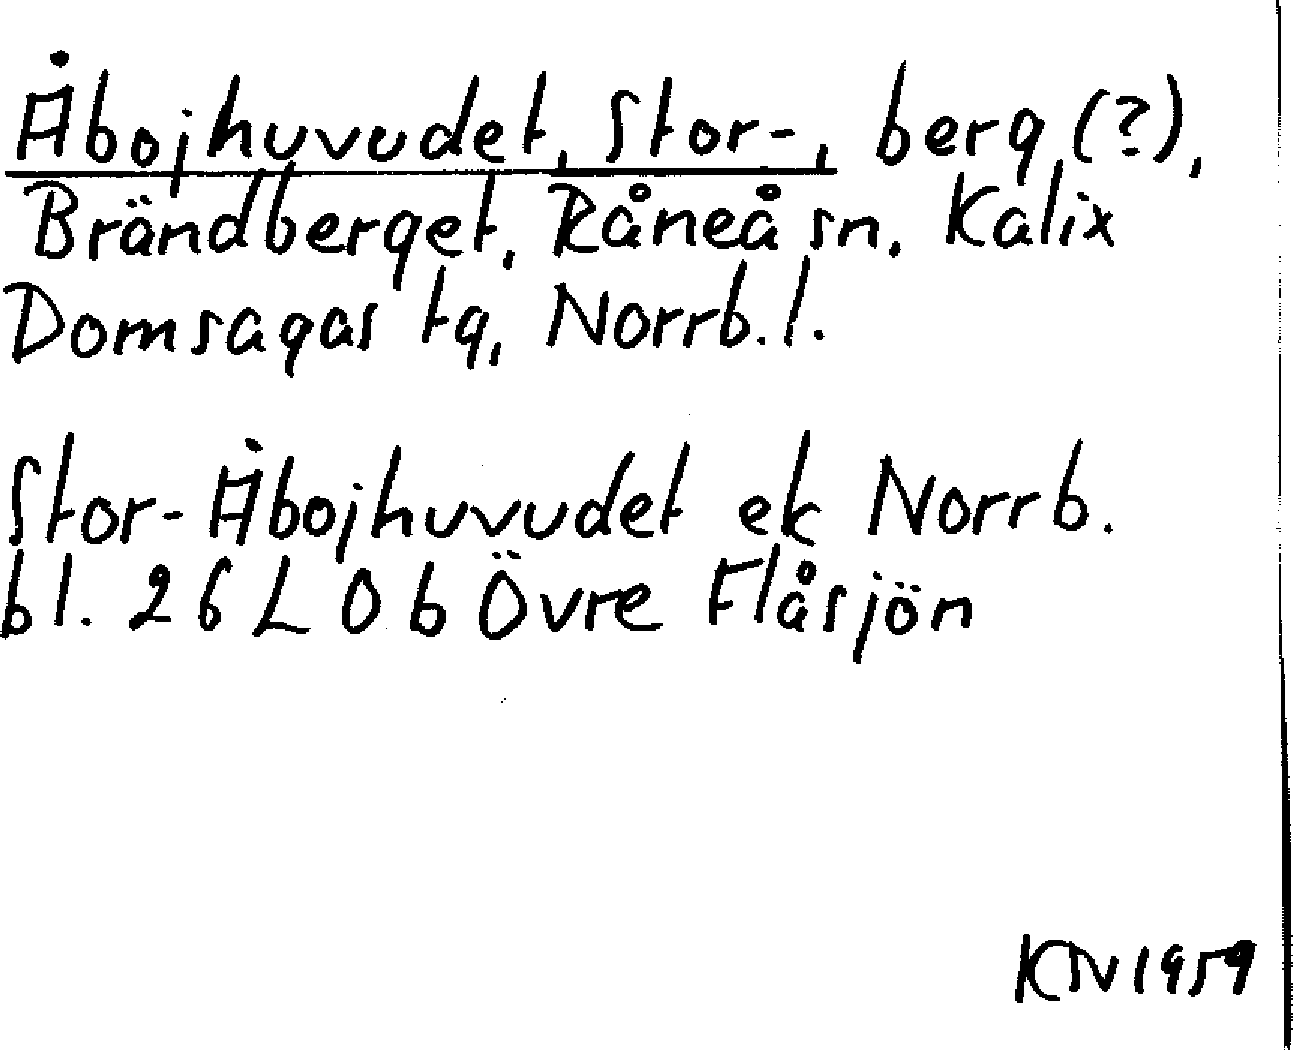 Åbojhuvudet, Stor-, berg (?),
Brändberget, Råneå sn, Kalix
Domsagas tg, Norrb. l.
Stor-Åbojhuvudet ek Norrb.
bl. 26 L 0 b Övre Flåsjön
KN 1959